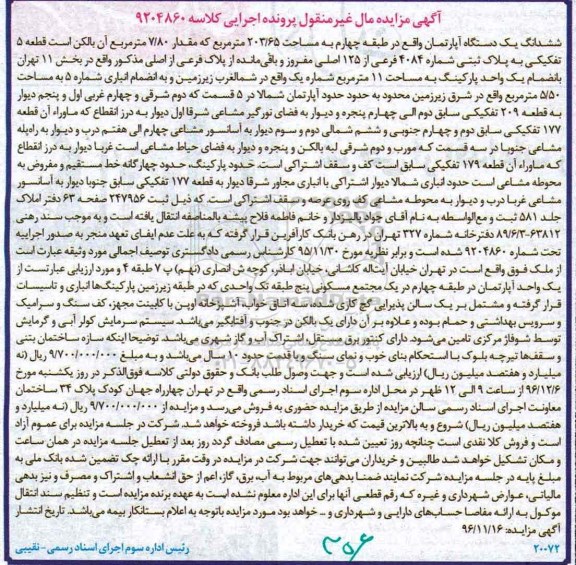 آگهی مزایده مال غیر منقول پرونده اجرایی کلاسه ۹۲۰۴۸۶۰
ششدانگ یک دستگاه آپارتمان واقع در طبقه چهارم به مساحت ۲۰۳/۶۵ مترمربع که مقدار ۷/۸۰ مترمربع آن بالکن است قطعه ۵
تفکیکی به پلاک ثبتی شماره ۴۰۸۴ فرعی از ۱۲۵ اصلی مفروز و باقی‌مانده از پلاک فرعی از اصلی مذکور واقع در بخش ۱۱ تهران
بانضمام یک واحد پارکینگ به مساحت ۱۱ مترمربع شماره یک واقع در شمالغرب زیرزمین و به انضمام انباری شماره ۵ به مساحت
۵/۵۰ مترمربع واقع در شرق زیرزمین محدود به حدود حدود آپارتمان شمالا در ۵ قسمت که دوم شرقی و چهارم غربی اول و پنجم دیوار
به قطعه ۲۰۹ تفکیکی سابق دوم الی چهارم پنجره و دیوار به فضای نورگیر مشاعی شرقا اول دیوار به درز انقطاع که ماوراء آن قطعه
۱۷۷ تفکیکی سابق دوم و چهارم جنوبی و ششم شمالی دوم و سوم دیوار به آسانسور مشاعی چهارم الی هفتم درب و دیوار به راه‌پله
مشاعی جنوبا در سه قسمت که مورب و دوم شرقی لبه بالکن و پنجره و دیوار به فضای حیاط مشاعی است غربا دیوار به درز انقطاع
که ماوراء آن قطعه ۱۷۹ تفکیکی سابق است کف و سقف اشتراکی است. حدود پارکینگ: حدود چهارگانه خط مستقیم و مفروض به
محوطه مشاعی است حدود انباری شمالا دیوار اشتراکی با انباری مجاور شرقا دیوار به قطعه ۱۷۷ تفکیکی سابق جنوبا دیوار به آسانسور
مشاعی غربا درب و دیوار به محوطه مشاعی کف روی عرصه و سقف اشتراکی است. که ذیل ثبت ۲۴۷۹۵۶ صفحه ۶۳ دفتر املاک
جلد ۵۸۱ ثبت و مع‌الواسطه به نام آقای جواد پالیزدار و خانم فاطمه فلاح پیشه بالمناصفه انتقال یافته است و به موجب سند رهنی
۶۳۸۱۲-۸۹/۶/۳ دفترخانه شماره ۳۲۷ تهران در رهن بانک کارآفرین قرار گرفته که به علت عدم ایفای تعهد منجر به صدور اجراییه
تحت شماره ۹۲۰۴۸۶۰ شده است و برابر نظریه مورخ ۹۵/۱۱/۳۰ کارشناس رسمی دادگستری توصیف اجمالی مورد وثیقه عبارت است
از ملک فوق واقع است در تهران خیابان آیت‌اله کاشانی، خیابان اباذر، کوچه ش انصاری (نهم)، پ ۷ طبقه ۴ و مورد ارزیابی عبارتست از
یک واحد آپارتمان در طبقه چهارم در یک مجتمع مسکونی پنج طبقه تک واحدی که در طبقه زیرزمین پارکینگ‌ها انباری و تاسیسات
قرار گرفته و مشتمل بر یک سالن پذیرایی گچ کاری شده سه اتاق خواب آشپزخانه اوپن با کابینت مجهز، کف سنگ و سرامیک
و سرویس بهداشتی و حمام بوده و علاوه بر آن دارای یک بالکن در جنوب و آفتابگیر می‌باشد. سیستم سرمایش کولر آبی و گرمایش
توسط شوفاژ مرکزی تامین می‌شود. دارای کنتور برق مستقل، اشتراک آب و گاز شهری می‌باشد. توضیحا اینکه سازه ساختمان بتنی
و سقف‌ها تیرچه بلوک با استحکام بنای خوب و نمای سنگ و با قدمت حدود ۱۰ سال می‌باشد و به مبلغ ۹/۷۰۰/۰۰۰/۰۰۰ ریال (نه
میلیارد و هفتصد میلیون ریال) ارزیابی شده است و جهت وصول طلب بانک و حقوق دولتی کلاسه فوق‌الذکر در روز یکشنبه مورخ
۹۶/۱۲/۶ از ساعت ۹ الی ۱۲ ظهر در محل اداره سوم اجرای اسناد رسمی واقع در تهران چهارراه جهان کودک پلاک ۳۴ ساختمان
معاونت اجرای اسناد رسمی سالن مزایده از طریق مزایده حضوری به فروش می‌رسد و مزایده از ۹/۷۰۰/۰۰۰/۰۰۰ ریال (نه میلیارد و
هفتصد میلیون ریال) شروع و به بالاترین قیمت که خریدار داشته باشد فروخته خواهد شد. شرکت در جلسه مزایده برای عموم آزاد
است و فروش کلا نقدی است چنانچه روز تعیین شده با تعطیل رسمی مصادف گردد روز بعد از تعطیل جلسه مزایده در همان ساعت
و مکان تشکیل خواهد شد طالبین و خریداران می‌توانند جهت شرکت در مزایده در وقت مقرر با ارائه چک تضمین شده بانک ملی به
مبلغ پایه در جلسه مزایده شرکت نمایند ضمنا بدهی‌های مربوط به آب، برق، گاز، اعم از حق انشعاب و اشتراک و مصرف و نیز بدهی
مالیاتی، عوارض شهرداری و غیره که رقم قطعی آنها برای این اداره معلوم نشده است به عهده برنده مزایده است و تنظیم سند انتقال
موکول به ارائه مفاصا حساب‌های دارایی و شهرداری و ... خواهد بود مورد مزایده باتوجه به اعلام بستانکار بیمه می‌باشد. تاریخ انتشار
آگهی مزایده: ۹۶/۱۱/۱۶
رئیس اداره سوم اجرای اسناد رسمی- نقیبی
۲۰۰۷۲